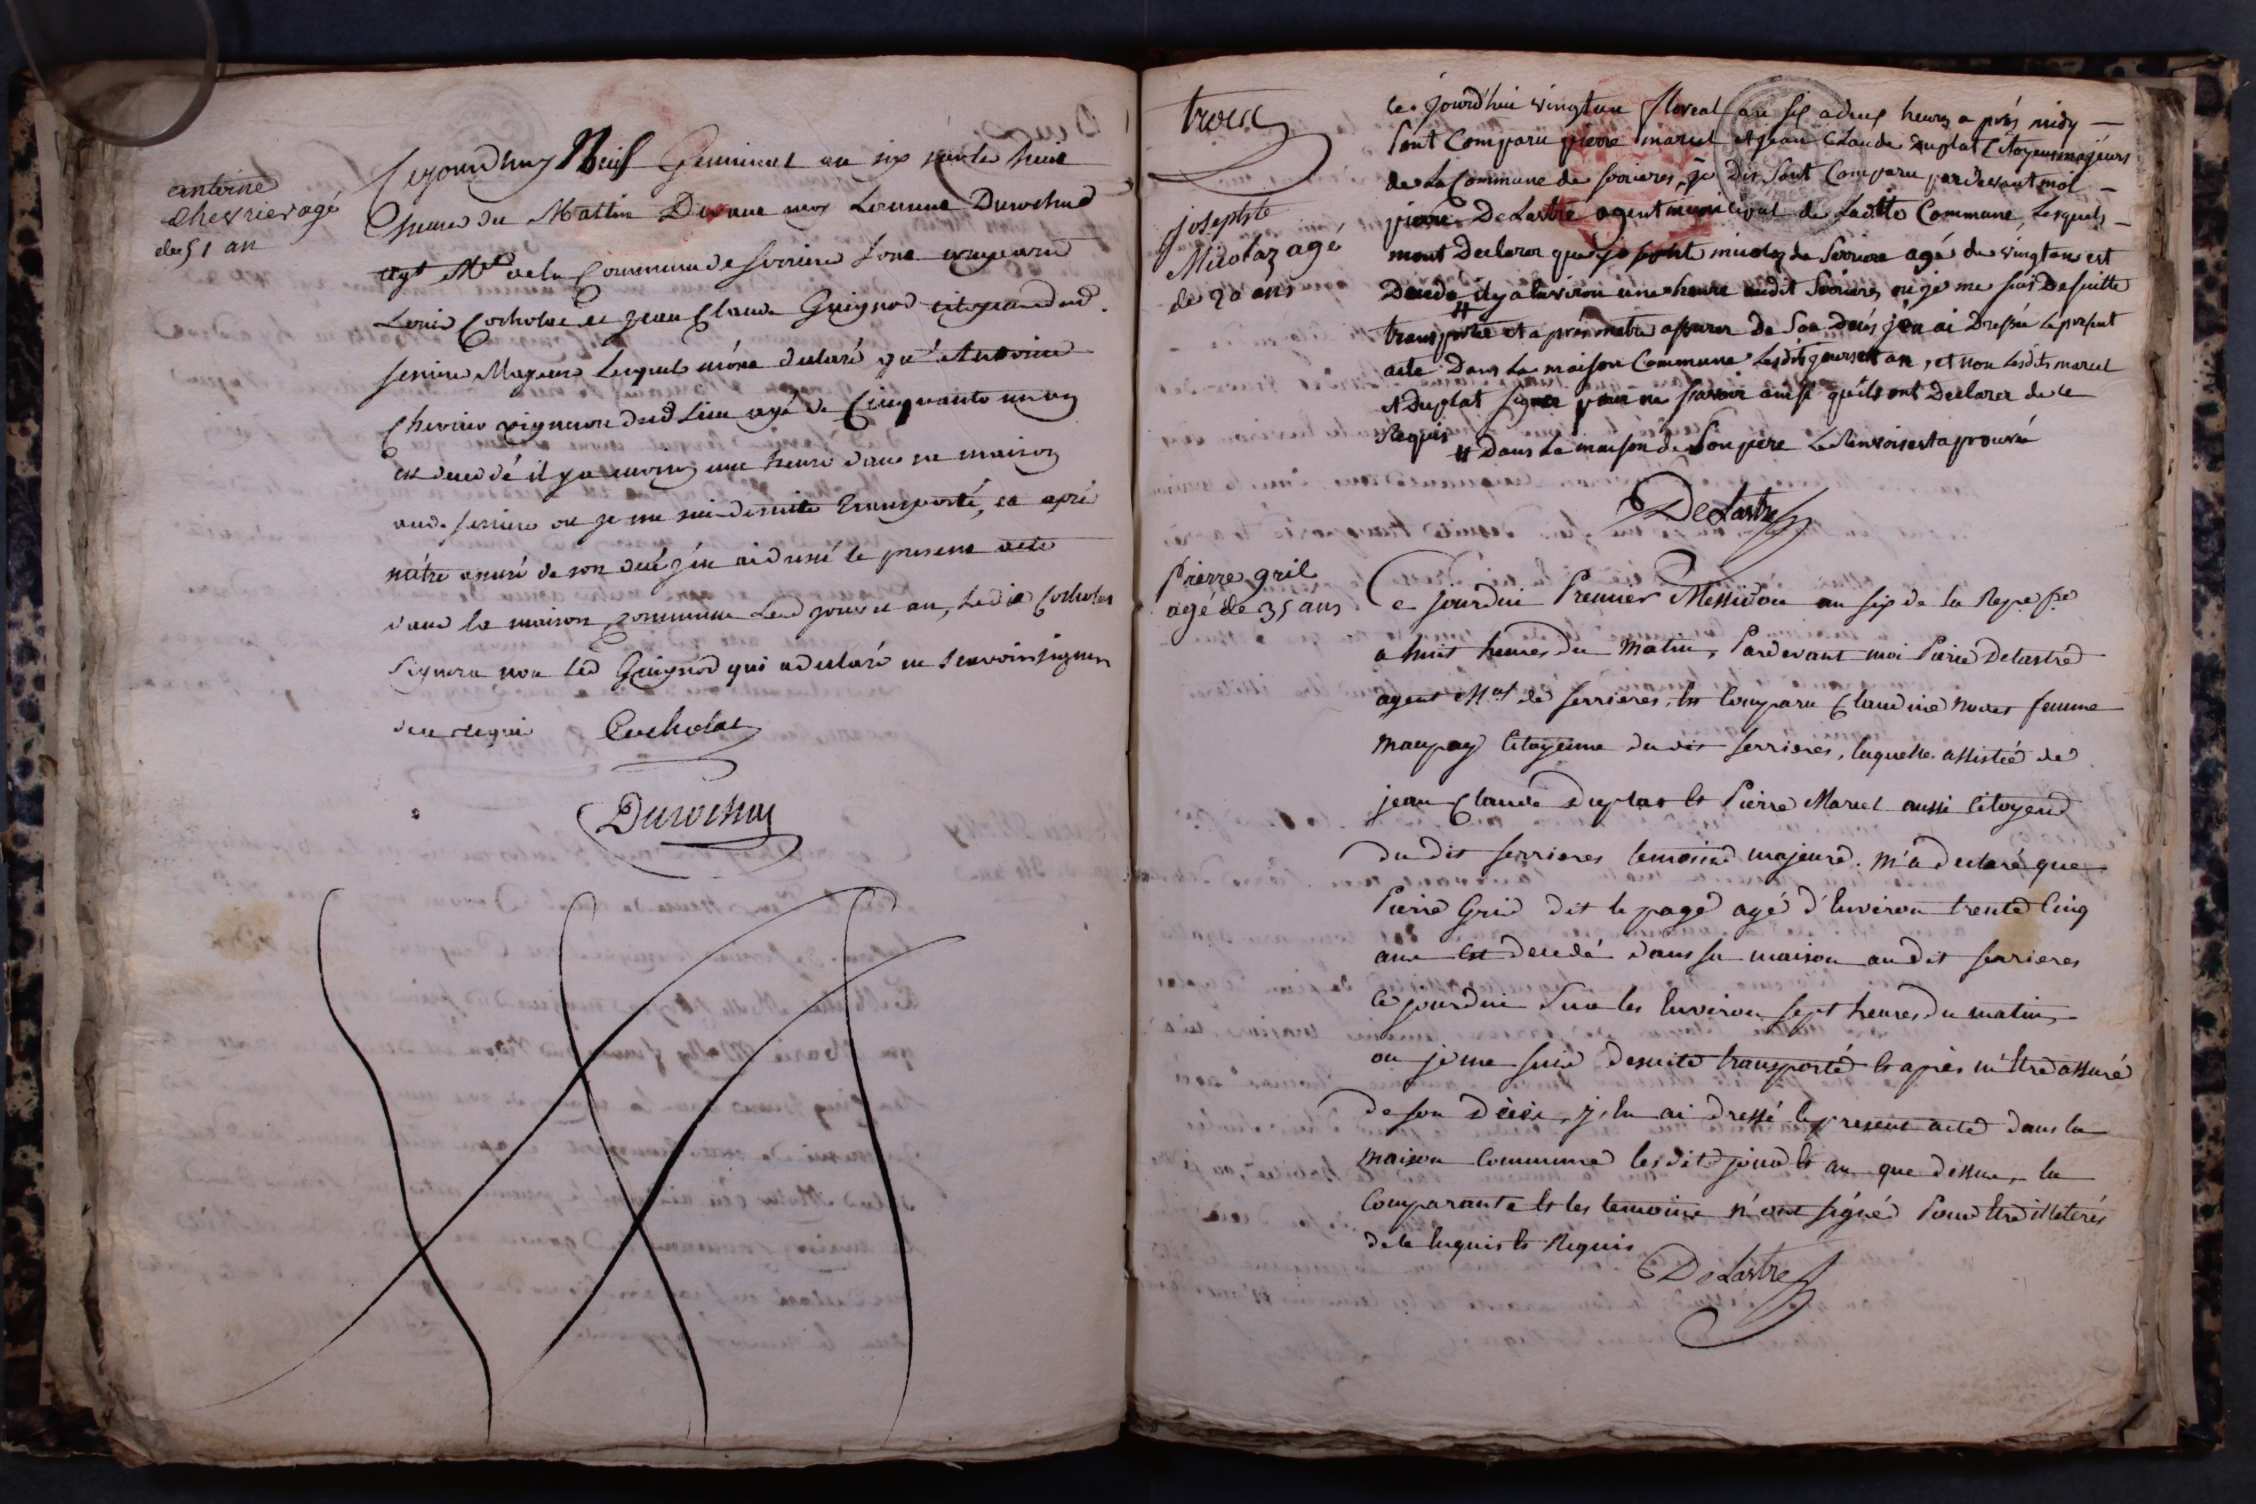 antoine
chevrier agé
de 51 an
Cejourdhuy Neuf Germinal an six sur les huit
heures du Mattin Devant moy Durochat
agt Mal de la Commune de serriere sont comparu
Louis Cocholat et jean Claude Guignod citoyens dud.
serriere Majeurs lesquels mont déclaré qu'Antoine
Chevrier vigneron dud lieu agé de Cinquante un an
est decedé il y a environ une heure dans sa maison
aud. serriere ou je me suis desuitte transporté, et apré
mêtre assuré de son decé j'en ai dressé le present acte
dans la maison commune led jour et an, ledit Cochola
signera non led Guignod qui a déclaré ne scavoir signer
de ce requi Cocholat
Durochat
trois
josephte
Micolaz agé
de 20 ans
ce jourd'hui vingt un floreal an six a deux heures a près midy —
sont Comparu pierre marcel et jean Claude duplat Citoyens majeurs
de la Commune de serrieres, je dis sont Comparu pardevant moi —
pierre De Lastre agent municipal de Laditte Commune, Lesquels —
mont Declarer que josephte micolaz de Serriere agé de vingt ans est
Decedé il y a Environ une heure audit Serrieres ou je me suis De suitte
transporté et après mètre assurer De Son Decés j'en ai Dressée Le présent
acte Dans La maison Commune Lesdits jours et an, et non Lesdits marcel
et Duplat signer pour ne scavoir ainsi qu'ils ont Declarer de ce
Requis # Dans La maison de Son pere Le Renvois est aprouvée
DeLastre
Pierre gril
agé de 35 ans
Ce jourdui Premier Messidor an six de la Repe fse
a huit heures du matin, Pardevant moi Pierre Delastre
agent Mal de serrieres, est Comparu Claudine femme
Maupay Citoyenne du dit serrieres, laquelle assistée de
jean Claude Duplat et Pierre Marcel aussi Citoyens
du dit serrieres temoins majeurs. m'a declaré que
Pierre Gril dit le page agé d'Environ trente Cinq
ans est decedé dans sa maison au dit serrieres
Ce jourdui sur les Environ sept heures du matin,
ou je me suis desuite transporté et après m'être assuré
de son décès, j'en ai dressé le present acte dans la
maison Commune lesdits jour et an que dessus, la
Comparante et les temoins n'ont signé Pour être illeterés
de ce enquis et Requis
DeLastre